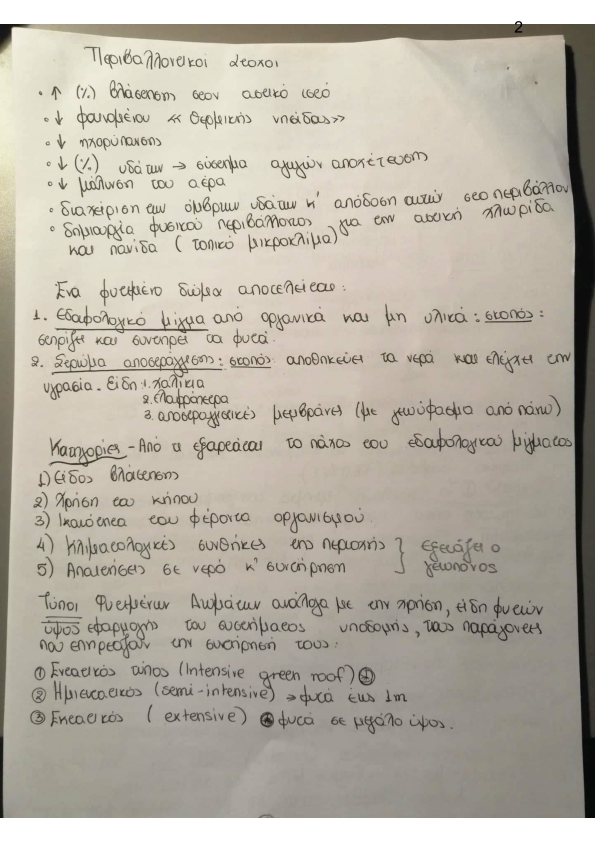 2
Περιβαλλοντικοί Στόχοι
• ↑ (%) βλάστησης στον αστικό ιστό
• ↓ φαινομένου « Θερμικής νησίδας»
• ↓ ηχορύπανσης
• ↓ (%) υδάτων → σύστημα αγωγών αποχέτευσης
• ↓ μόλυνση του αέρα
• διαχείριση των όμβριων υδάτων κ' απόδοση αυτών στο περιβάλλον
• δημιουργία φυσικού περιβάλλοντος για την αστική χλωρίδα
και πανίδα ( τοπικό μικροκλίμα)
Ένα φυτεμένο δώμα αποτελείται:
1. Εδαφολογικό μίγμα από οργανικά και μη υλικά : σκοπός :
στηρίζει και συντηρεί τα φυτά.
2. Στρώμα αποστράγγισης : σκοπός αποθηκεύει τα νερά και ελέγχει την
υγρασία. Είδη : 1. χαλίκια
2. ελαφρόπετρα
3. αποστραγγιστικές μεμβράνες (με γεωύφασμα από πάνω)
Κατηγορίες - Από τι εξαρτάται το πάχος του εδαφολογικού μίγματος
1) Είδος βλάστησης
2) Χρήση του κήπου
3) Ικανότητα του φέροντα οργανισμού.
4) Κλιματολογικές συνθήκες της περιοχής } εξετάζει ο
5) Απαιτήσεις σε νερό κ' συντήρηση } γεωπόνος
Τύποι Φυτεμένων Δωμάτων ανάλογα με την χρήση, είδη φυτών
ύψος εφαρμογής του συστήματος υποδομής, τους παράγοντες
που επηρεάζουν την συντήρησή τους :
① Εντατικός τύπος (Intensive green roof)
② Ημιεντατικός (semi-intensive) → φυτά έως 1m
③ Εκτατικός ( extensive) φυτά σε μεγάλο ύψος.